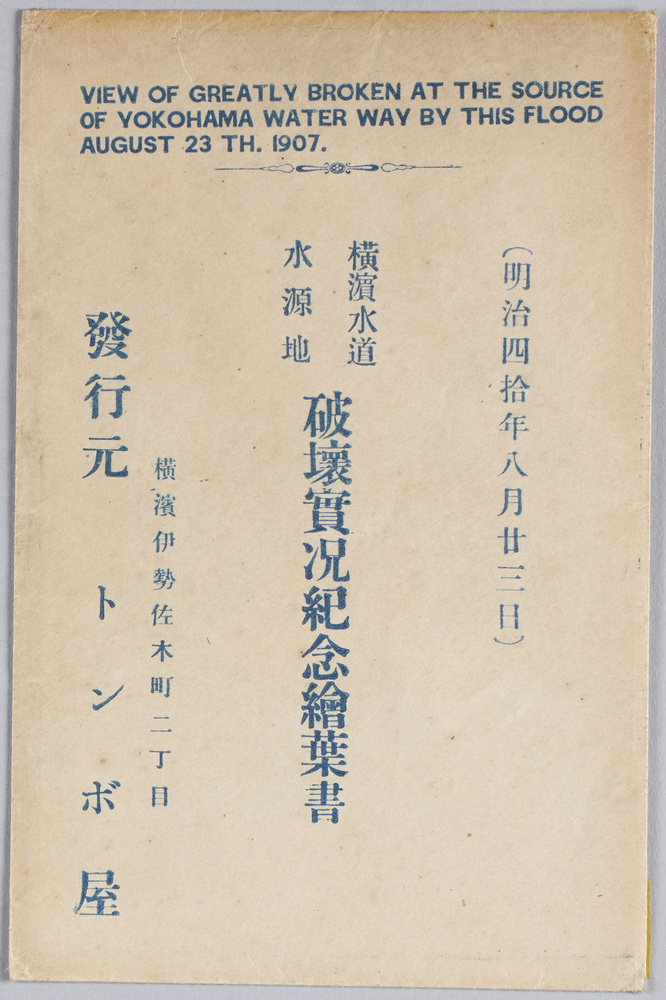 VIEW OF GREATLY BROKEN AT THE SOURCE
OF YOKOHAMA WATER WAY BY THIS FLOOD
AUGUST 23 TH. 1907.
(明治四拾年八月廿三日)
橫濱水道
水源地
破壞實况紀念繪葉書
橫濱伊勢佐木町二丁目
發行元 トンボ屋